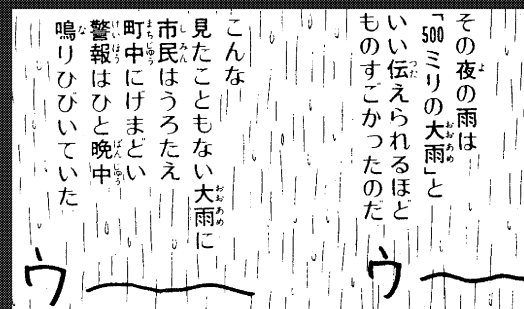 その夜の雨は
「500ミリの大雨」と
いい伝えられるほど
ものすごかったのだ
こんな
見たこともない大雨に
市民はうろたえ
町中にげまどい
警報はひと晩中
鳴りひびいていた
ウ〜
ウ〜